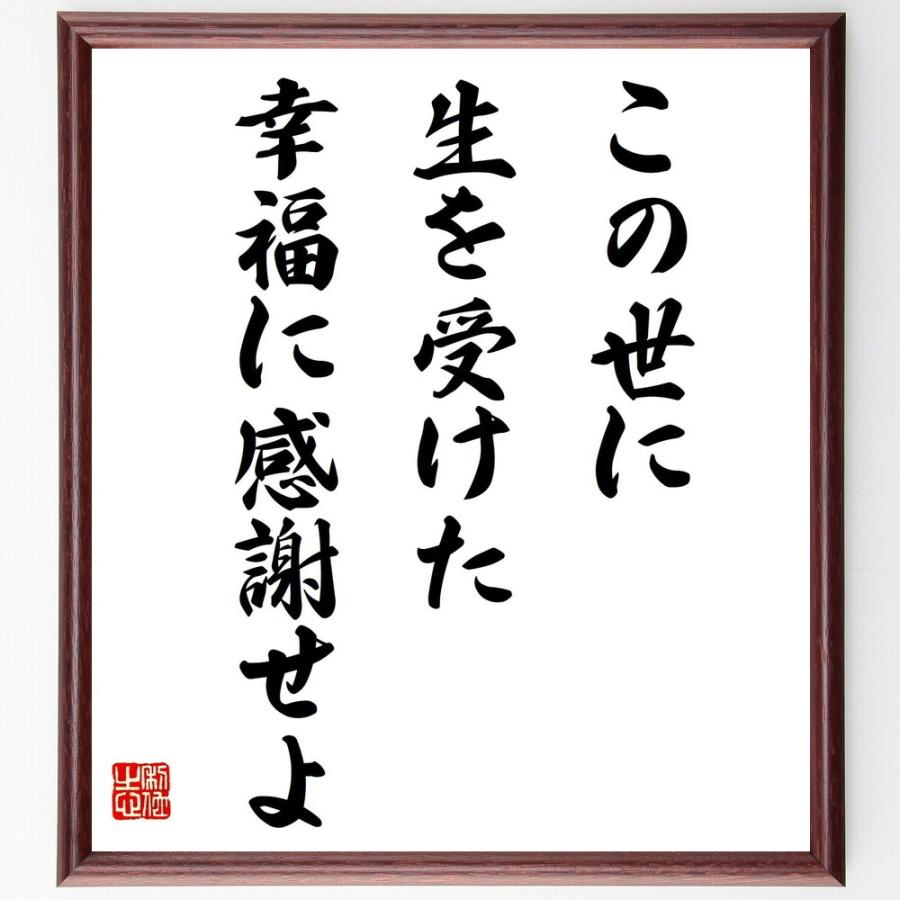 この世に
生を受けた
幸福に感謝せよ